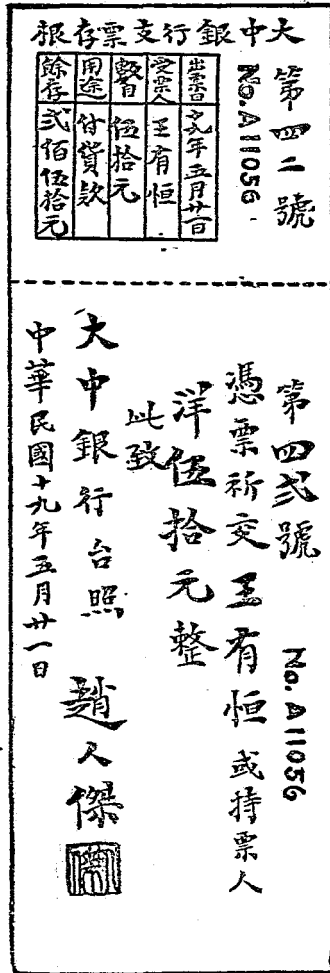 大中銀行支票存根
第四二號
No. A11056
出票日 十九年五月廿一日
受票人 王有恒
數目 伍拾元
用途 付貨款
餘存 弍佰伍拾元
第四弍號 No. A11056
憑票祈交王有恒或持票人
洋伍拾元整
此致
大中銀行台照 趙人傑
中華民國十九年五月廿一日